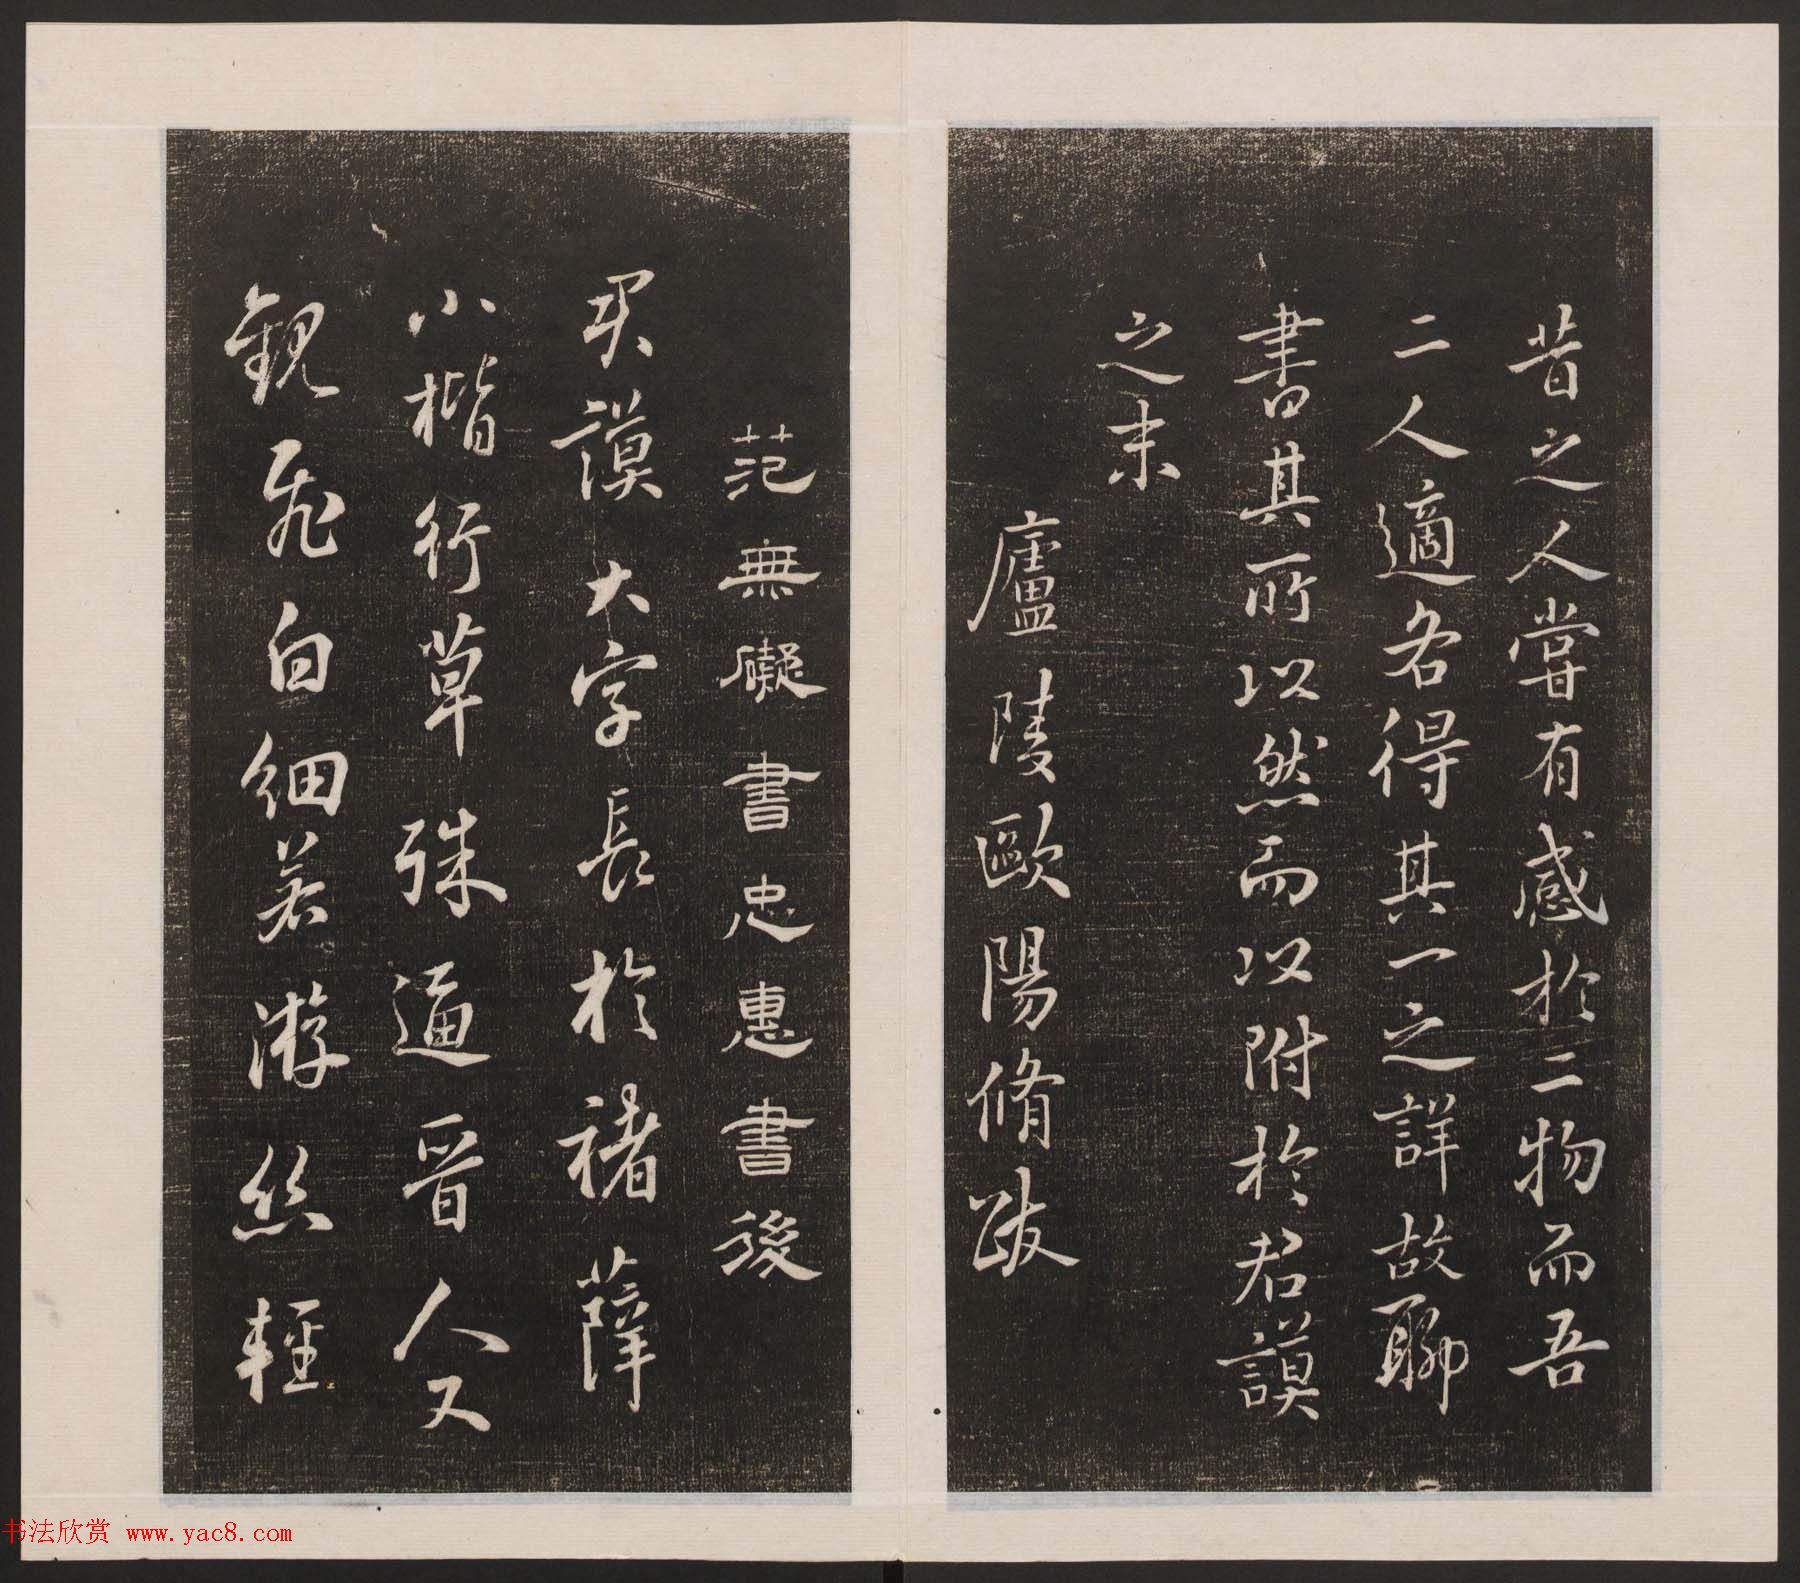 昔之人嘗有感於二物而吾
二人適各得其一之詳故聊
書其所以然而以附於君謨
之末
廬陵歐陽脩跋
范無礙書忠惠書後
君謨大字長於褚薛
小楷行草殊逼晉人又
觀飛白細若游絲輕
书法欣赏 www.yac8.com